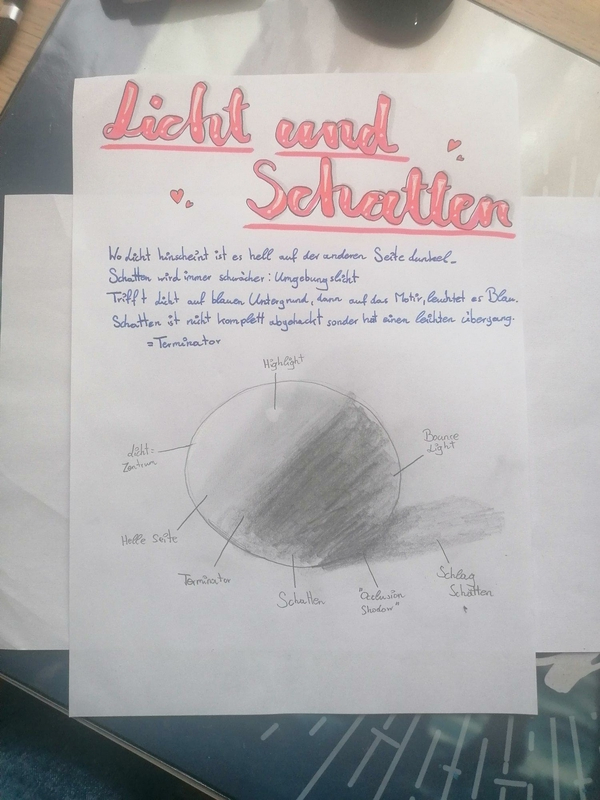 Licht und
Schatten
Wo Licht hinscheint ist es hell auf der anderen Seite dunkel.
Schatten wird immer schwächer: Umgebungslicht
Trifft Licht auf blauen Untergrund, dann auf das Motiv, leuchtet es Blau.
Schatten ist nicht komplett abgehackt sonder hat einen leichten übergang.
= Terminator
Highlight
Bounce
Light
Licht=
Zentrum
Helle Seite
Terminator
Schatten
"Occlusion
Shadow"
Schlag
Schatten